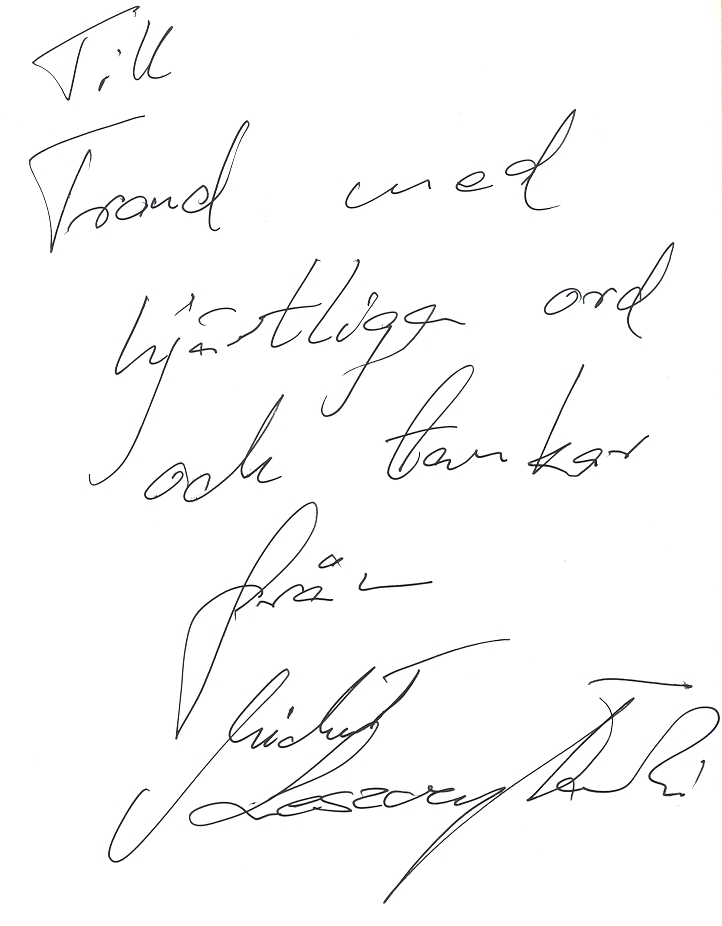 Till
Trond med
hjärtliga ord
och tankar
från